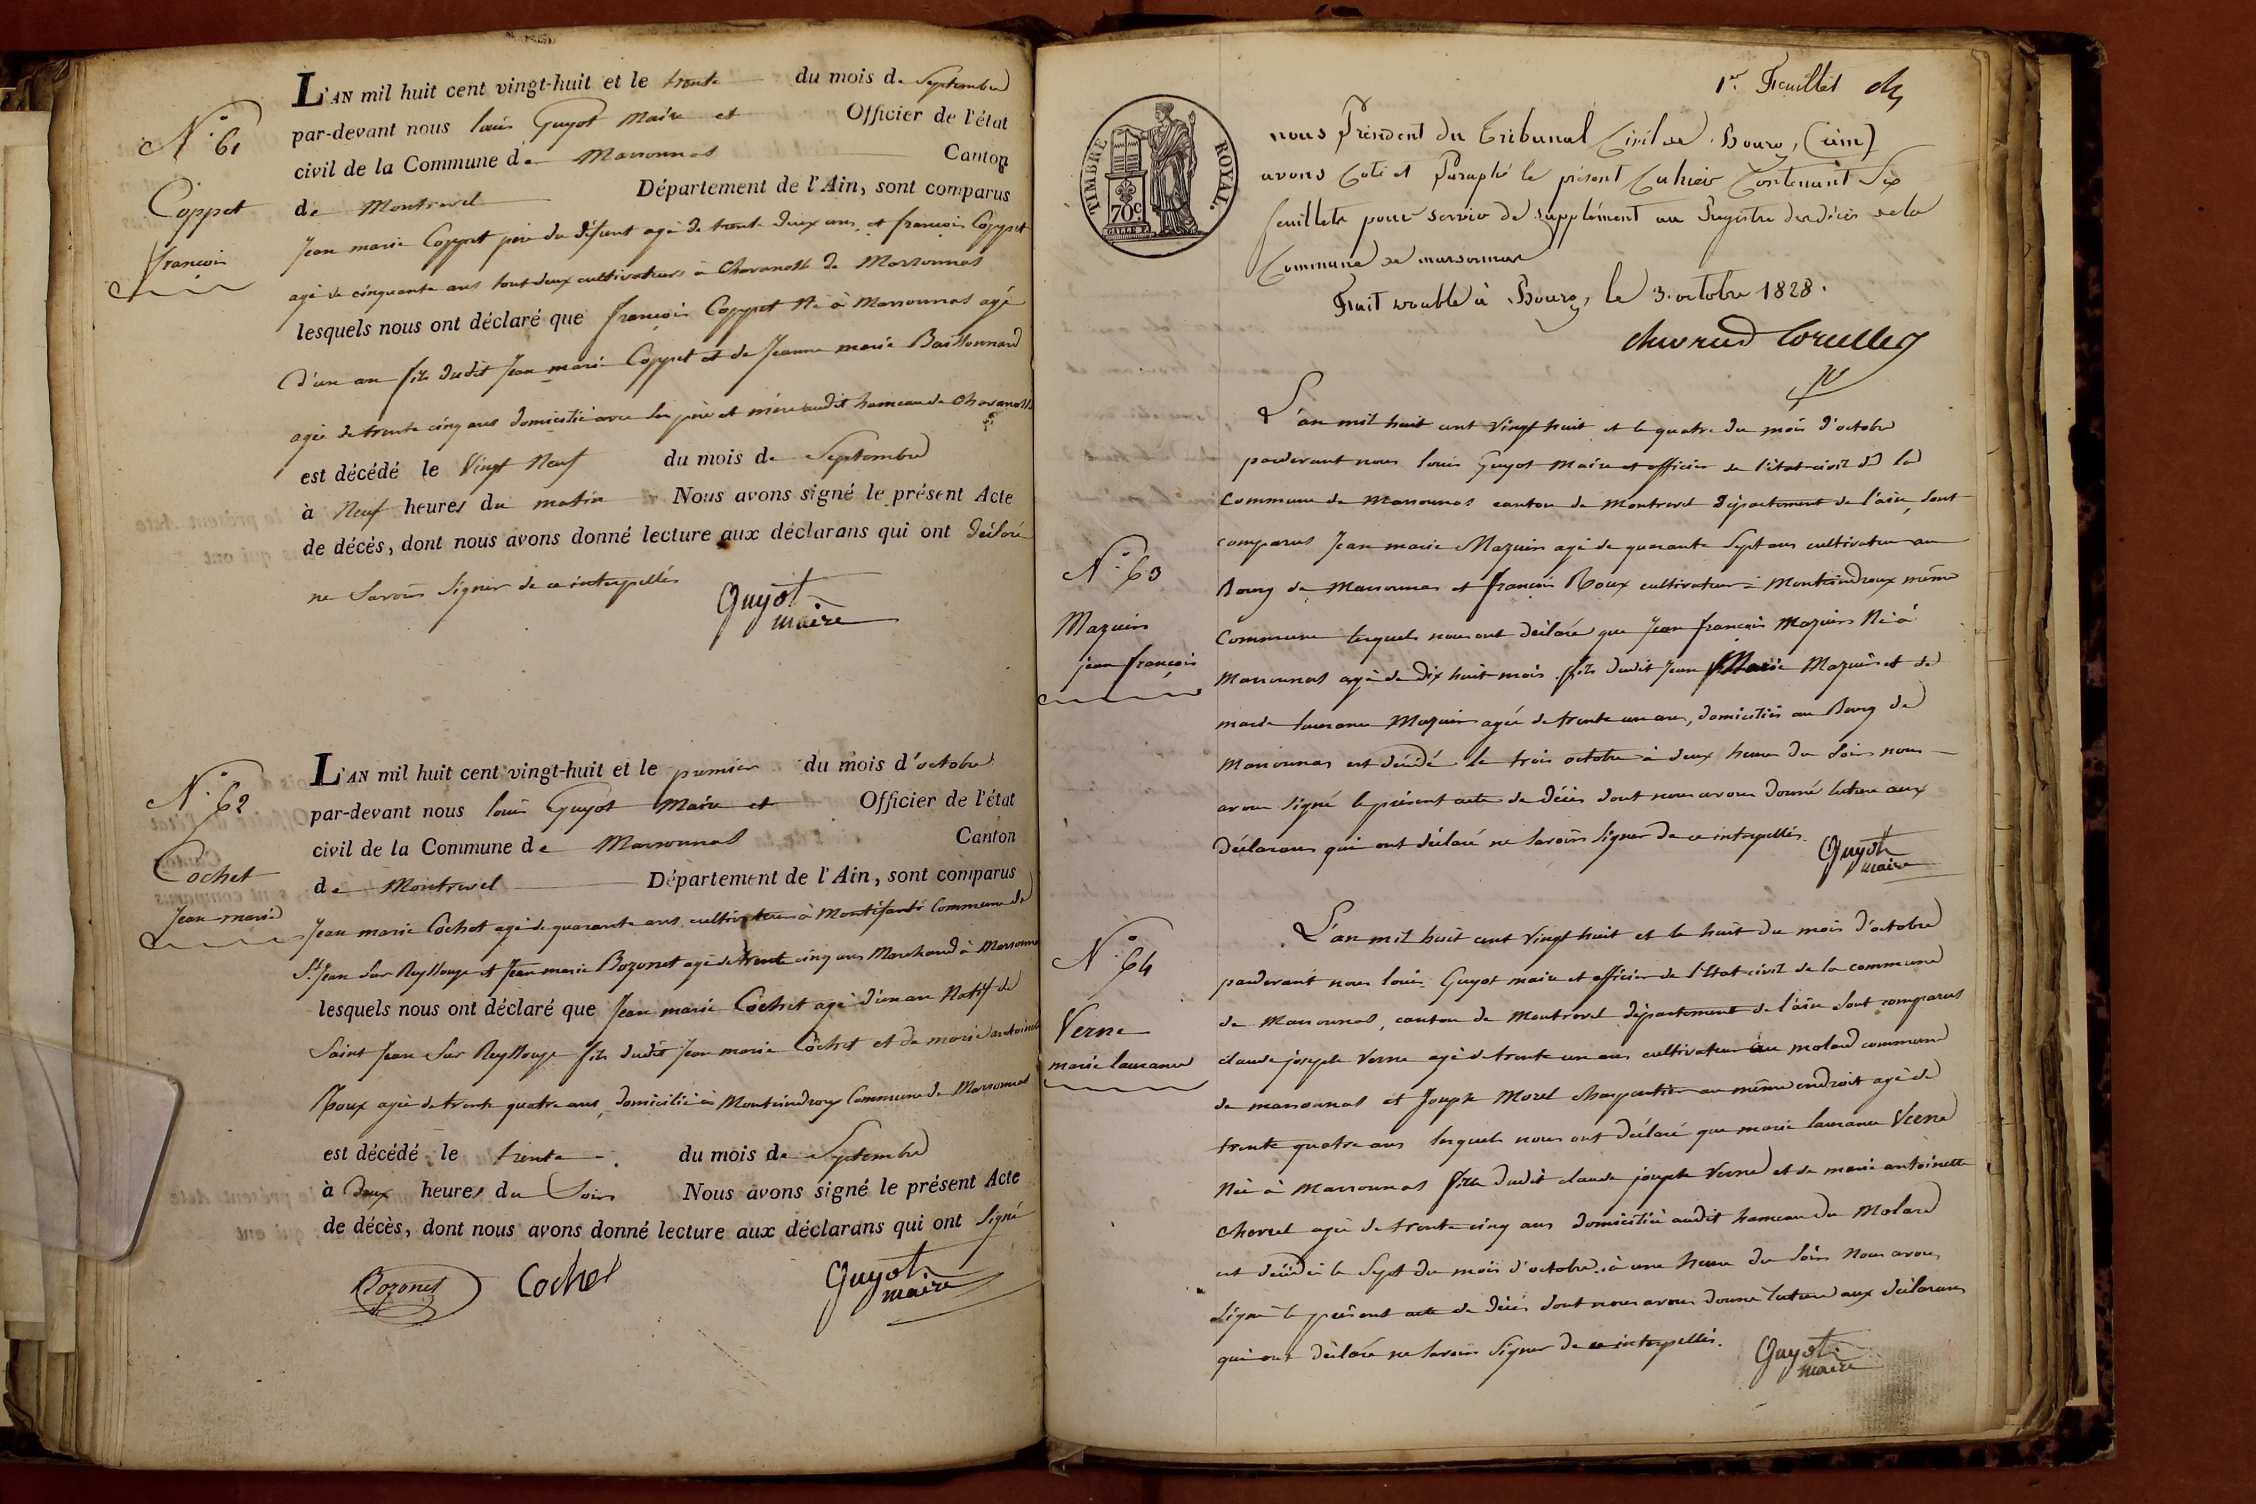 N.° 61
Coppet
françois
L'AN mil huit cent vingt-huit et le trente du mois de Septembre
par-devant nous louis Guyot Maire et Officier de l'état
civil de la Commune de Marsonnas Canton
de Montrevel Département de l'Ain, sont comparus
Jean marie Coppet père du défunt agé de trente deux ans, et françois Coppet
agé de cinquante ans tout deux cultivateurs à Chavanoss de Marsonnas
lesquels nous ont déclaré que françois Coppet Né à Marsonnas agé
d'un an fils dudit Jean marie Coppet et de Jeanne marie
agée de trente cinq ans domicilié avec ses père et mère audit hameau de Chavanoss
est décédé le Vingt Neuf du mois de Septembre
à Neuf heures du matin Nous avons signé le présent Acte
de décès, dont nous avons donné lecture aux déclarans qui ont déclaré
ne Savoir Signer de ce interpellés
Guyot
maire
N.° 62
Cochet
Jean marie
L'AN mil huit cent vingt-huit et le premier du mois d'octobre
par-devant nous louis Guyot Maire et Officier de l'état
civil de la Commune de Marsonnas Canton
de Montrevel Département de l'Ain, sont comparus
Jean marie Cochet agé de quarante ans cultivateur à Commune de
St Jean Sur Reyssouze et Jean marie Bozonet agé de trente cinq ans Marchand à Marsonnas
lesquels nous ont déclaré que Jean marie Cochet agé d'un an Natif de
Saint Jean Sur Reyssouze fils dudit Jean marie Cochet et de marie antoinette
Roux agée de trente quatre ans, domicilié à Montcindroux Commune de Marsonnas
est décédé le trente du mois de Septembre
à deux heures du Soir Nous avons signé le présent Acte
de décès, dont nous avons donné lecture aux déclarans qui ont Signé
Bozonet Cochet Guyot
maire
1er Feuillet
TIMBRE ROYAL.
70c
nous Président du Tribunal Civil de Bourg, (ain)
avons Coté et Paraphé le présent Cahier Contenant Six
feuillets pour servir de supplément au Registre des décès de la
Commune de marsonnas
Fait double à Bourg, le 3. octobre 1828.
N.° 63
Mazuir
jean françois
L'an mil huit cent vingt huit et le quatre du mois d'octobre
pardevant nous louis Guyot Maire et officier de l'état civil de la
Commune de Marsonnas canton de Montrevel département de l'ain, sont
comparus Jean marie Mazuir agé de quarante Sept ans cultivateur au
Bourg de Marsonnas et françois Roux cultivateur à Montcindroux même
Commune lesquels nous ont déclaré que Jean françois Mazuir Né à
Marsonnas agé de dix huit mois fils dudit Jean Marie Mazuir et de
marie laurance Mazuir agée de trente un ans, domiciliés au Bourg de
Marsonnas est décédé le trois octobre à deux heure du Soir nous
avons Signé le présent acte de décès dont nous avons donné lecture aux
déclarans qui ont déclaré ne Savoir Signer de ce interpellés.
Guyot
maire
N.° 64
Verne
marie laurance
L'an mil huit cent Vingt huit et le huit du mois d'octobre
pardevant nous louis Guyot maire et officier de l'Etat civil de la commune
de Marsonnas, canton de Montrevel département de l'ain Sont comparus
claude joseph Verne agé de trente un ans cultivateur au molard commune
de marsonnas et Joseph Morel charpentier au même endroit agé de
trente quatre ans lesquels nous ont déclaré que marie laurance Verne
Née à Marsonnas fille dudit claude joseph Verne et de marie antoinette
chevrel agée de trente cinq ans domicilié audit hameau du Molard
est décédée le Sept du mois d'octobre à une heure du Soir Nous avons
Signé le présent acte de décès dont nous avons donné lecture aux déclarans
qui ont déclaré ne Savoir Signer de ce interpellés.
Guyot
maire